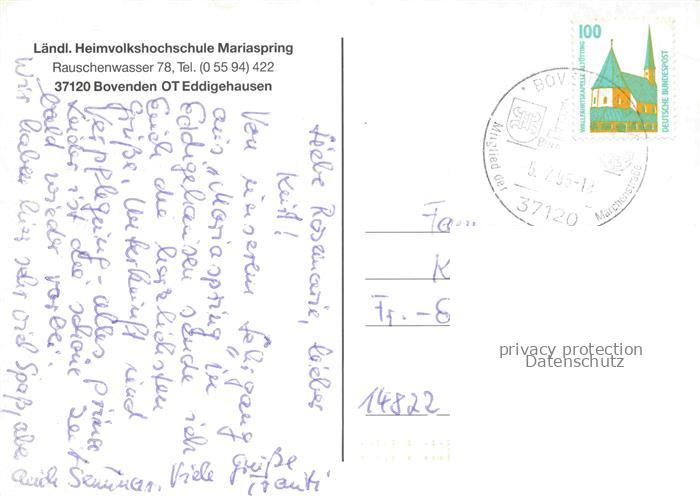 Ländl. Heimvolkshochschule Mariaspring
Rauschenwasser 78, Tel. (0 55 94) 422
37120 Bovenden OT Eddigehausen
Liebe Rosemarie, lieber
Kurt!
Von unserem Lehrgang
aus "Mariaspring" in
Eddigehausen sende ich
Euch die herzlichsten
Grüße. Unterkunft und
Verpflegung - alles prima
Leider ist die schöne Zeit
bald wieder vorbei.
Wir haben hier sehr viel Spaß, aber
auch Seminar. Viele Grüße
100
WALLFAHRTSKAPELLE ALTÖTTING
DEUTSCHE BUNDESPOST
BOV
Mitglied der
Märchenstraße
37120
Fam
K
Fr. - E
14822
privacy protection
Datenschutz